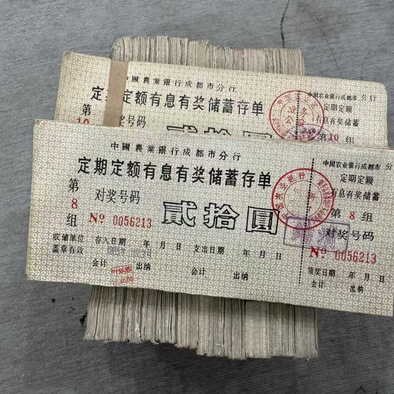 中國農業銀行成都市分行
定期定额有息有奖储蓄存单
第
10
对奖号码
贰拾圆
中國农业銀行成都市分行
定期定额
有息有奖储蓄
第10组
中國農業銀行成都市分行
定期定额有息有奖储蓄存单
第
8
组
对奖号码
№ 0056213
贰拾圓
收储单位
盖章有效
存入日期 年 月 日 支出日期 年 月 日
会计 出纳 会计 出纳
中國农业銀行成都市分行
定期定额
有息有奖储蓄
第 8 组
对奖号码
№ 0056213
领奖日期 年 月 日
会计 出纳